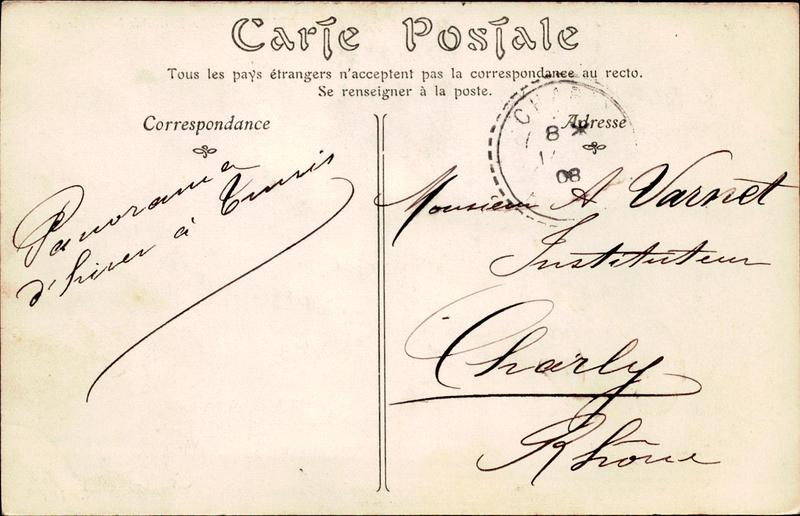 Carte Postale
Tous les pays étrangers n'acceptent pas la correspondance au recto.
Se renseigner à la poste.
Correspondance
Panorama
d'hiver à Tunis
Adresse
CHA
8 *
08
Monsieur A Varnet
Instituteur
Charly
Rhône